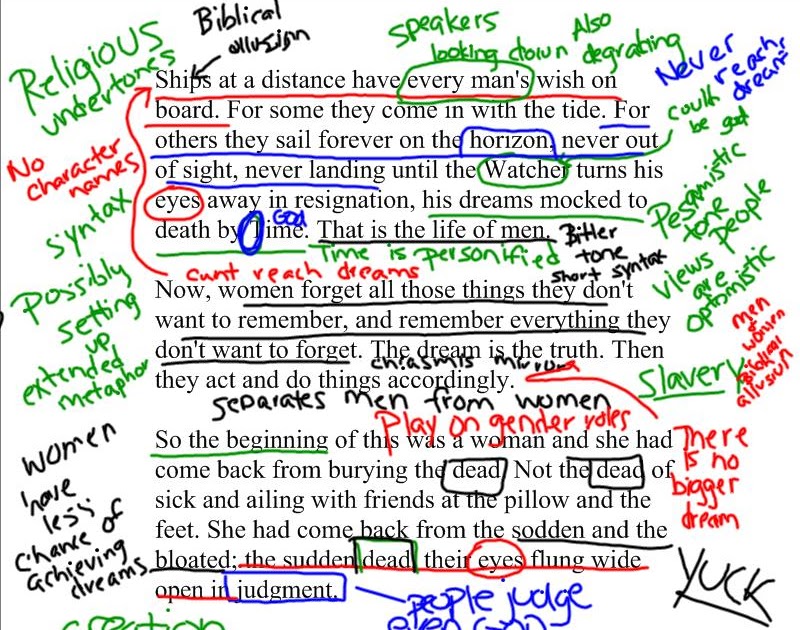 Biblical
allusion
speakers
looking down
Also
degrating
Religious
undertones
Never
reach
dream
Ships at a distance have every man's wish on
board. For some they come in with the tide. For
others they sail forever on the horizon, never out
of sight, never landing until the Watcher turns his
eyes away in resignation, his dreams mocked to
death by Time. That is the life of men.
could
be god
No
character
names
syntax
God
Pesamistic
tone
people
views
are
optomistic
Bitter
tone
short syntax
Time is personified
cunt reach dreams
Possibly
setting
up
extended
metaphor
Now, women forget all those things they don't
want to remember, and remember everything they
don't want to forget. The dream is the truth. Then
they act and do things accordingly.
chiasmis mirror
men
&
women
Biblical
allusion
Slavery
separates men from women
Play on gender roles
There
is no
bigger
dream
So the beginning of this was a woman and she had
come back from burying the dead. Not the dead of
sick and ailing with friends at the pillow and the
feet. She had come back from the sodden and the
bloated; the sudden dead, their eyes flung wide
open in judgment.
women
have
less
chance of
achieving
dreams
YUCK
people judge
even
creation